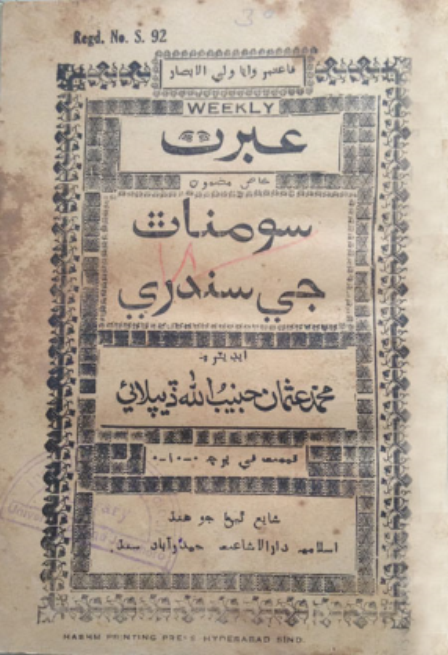 Regd. No. S. 92
فاعتبر وايا ولي الابصار
WEEKLY
عبرت
خاص مضمون
سومناٿ
جي سندري
ايڊيٽر:-
محمد عثمان حبيب الله ڏيپلائي
قيمت في پرچو ٠-١٠-٠
شايع ٿيڻ جو هنڌ
اسلاميه دارالاشاعت حيدرآباد سنڌ
HASHMI PRINTING PRESS HYDERABAD SIND.